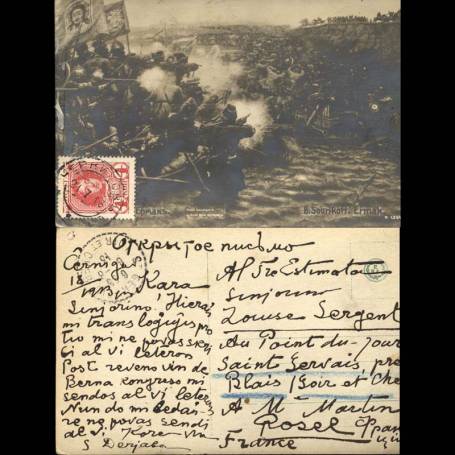 B. Sourikoff. Ermak.
Открытое письмо
18
1913
Kara
Sinjorino! Hieraŭ
mi transloĝiĝis pro
tio mi ne povas
al vi leteron
Post reveno vin de
Berna kongreso mi
sendos al vi leteron
Nun do mi bedaŭ
re ne povas sendi
al vi Kore via
S
Al Tre Estimata
Sinjorino
Louise Sergent
Au Point du jour
Saint Gervais, pre
Blois (Loir et Che
A Mr Martin
Rosel
France